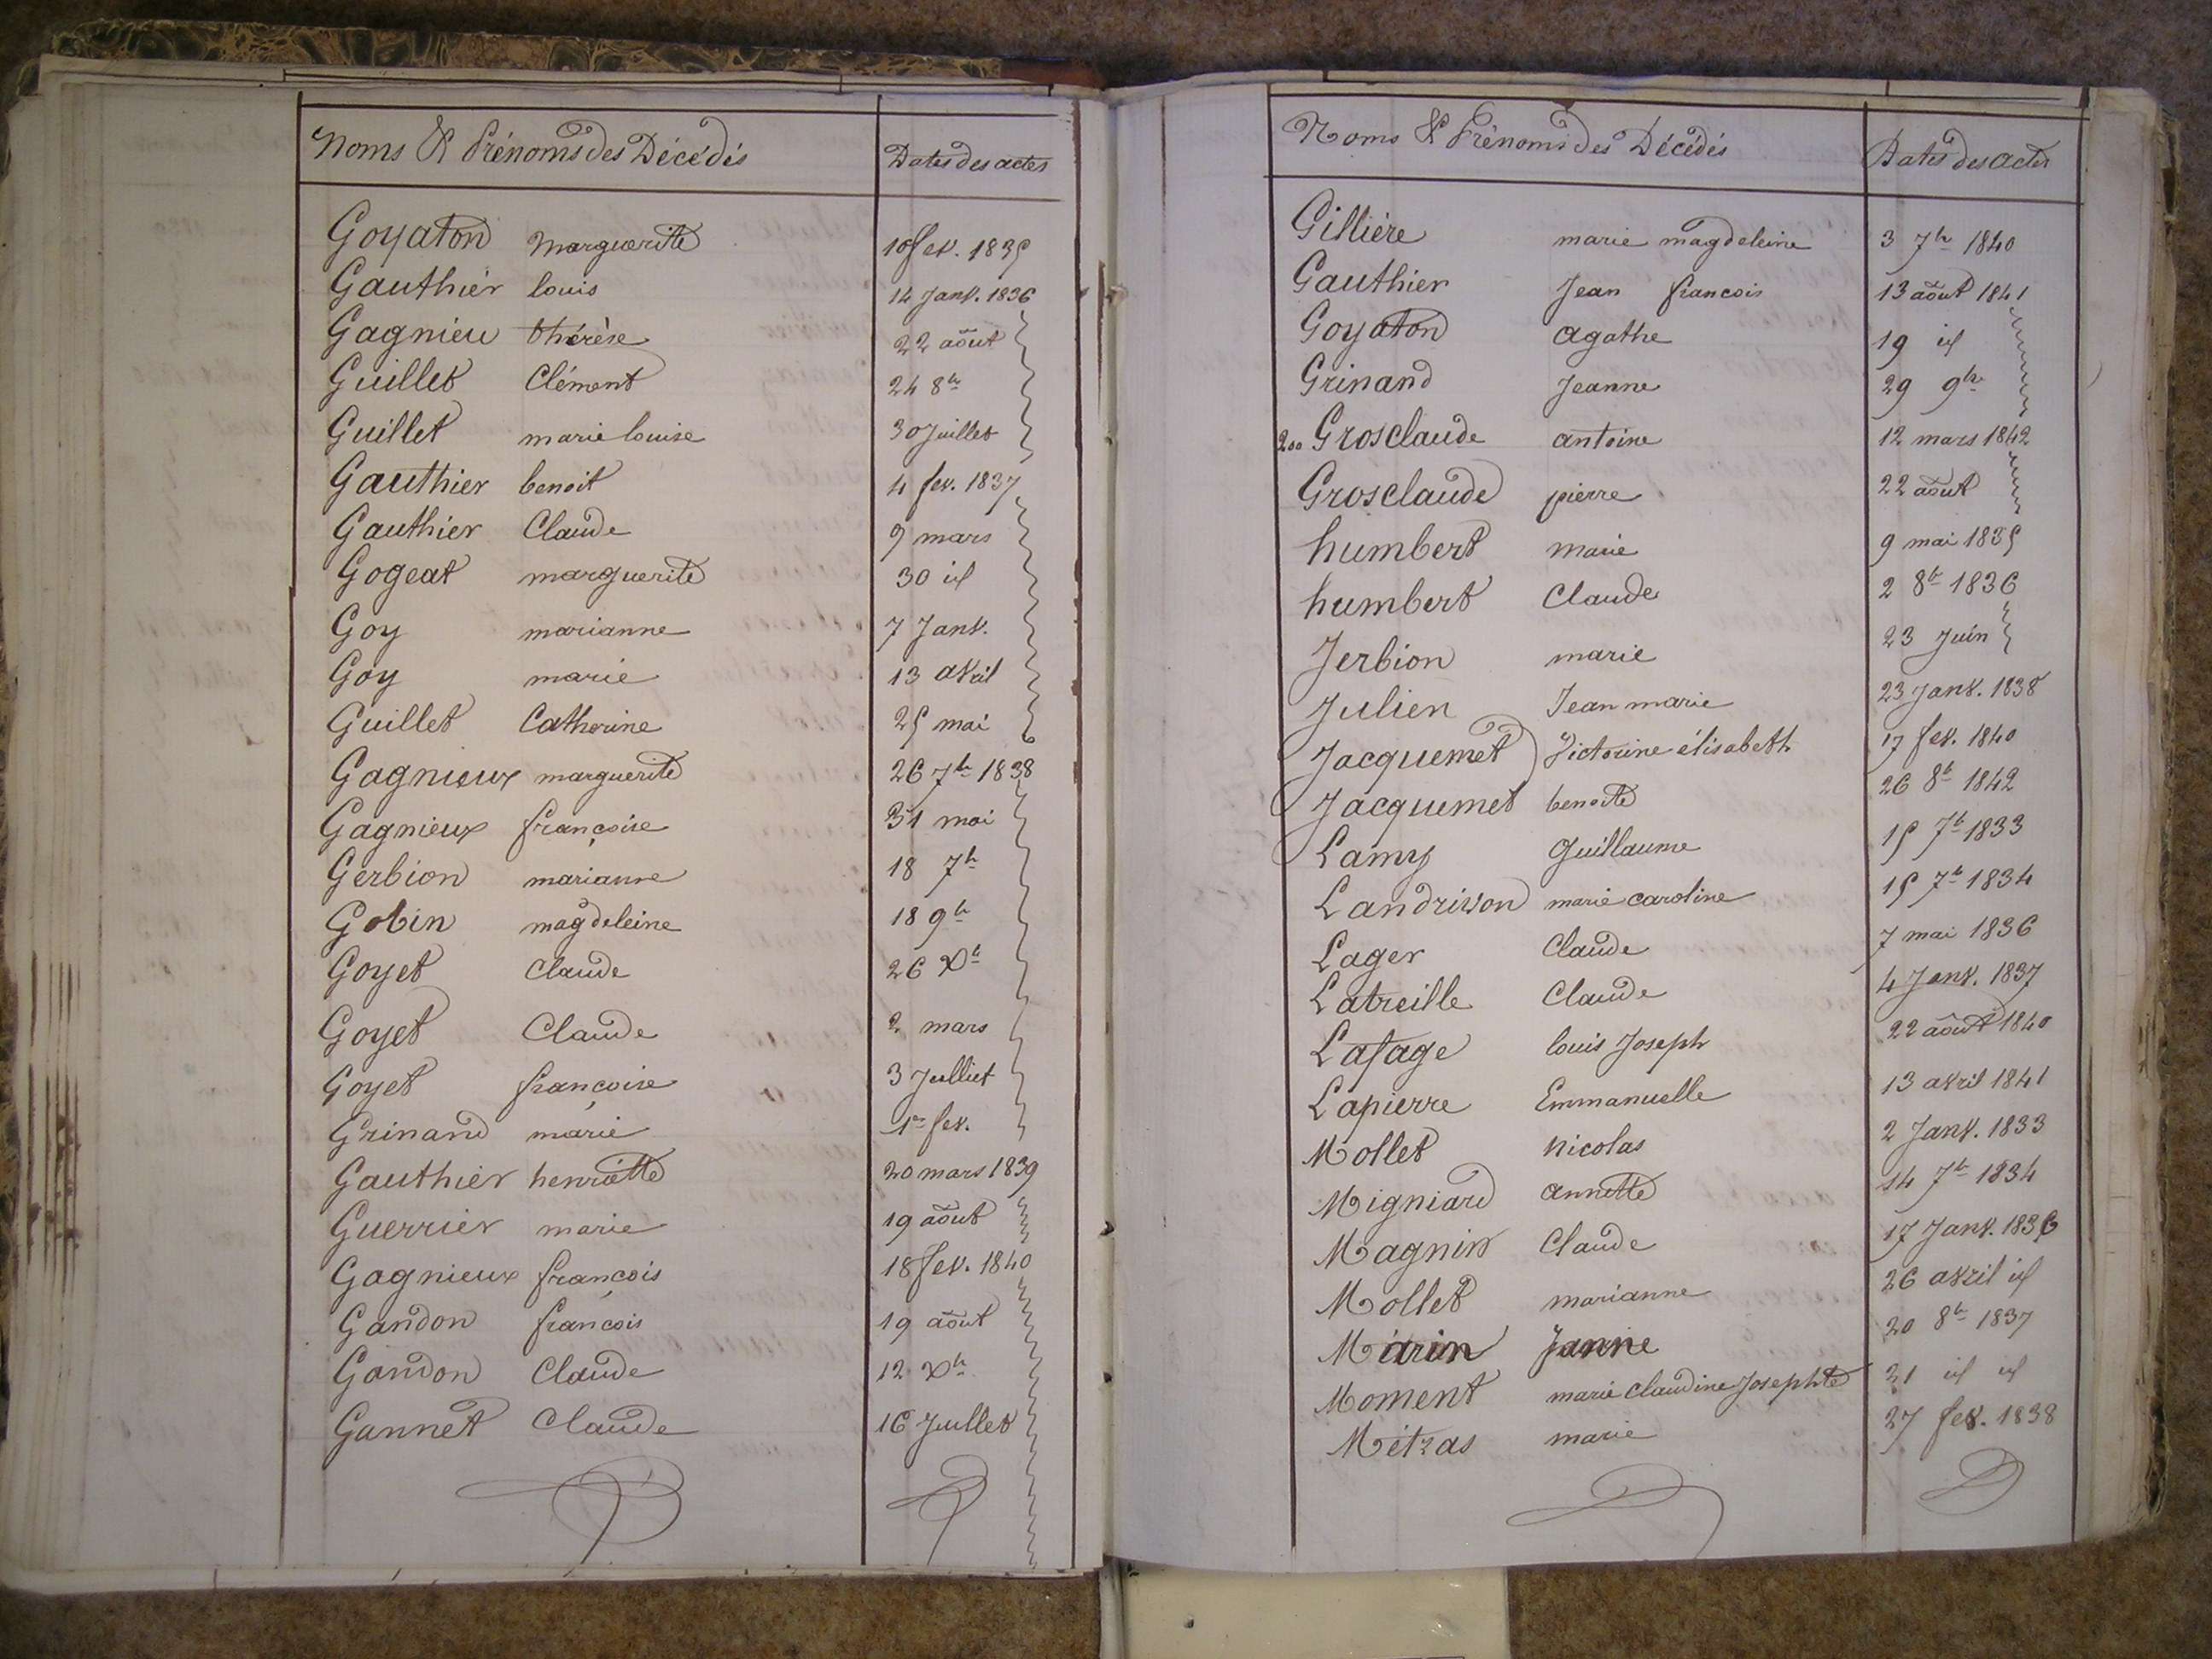 Noms & Prénoms des Décédés Dates des actes
Goyaton Marguerite 10 fev. 1835
Gauthier louis 14 Janv. 1836
Gagnieu thérèse 22 août
Guillet Clément 24 8bre
Guillet marie louise 30 Juillet
Gauthier benoit 4 fev. 1837
Gauthier Claude 9 mars
Gogeat marguerite 30 id
Goy marianne 7 Janv.
Goy marie 13 avril
Guillet Catherine 25 mai
Gagnieux marguerite 26 7bre 1838
Gagnieux françoise 31 mai
Gerbion marianne 18 7bre
Gobin magdeleine 18 9bre
Goyet Claude 26 Xbre
Goyet Claude 2 mars
Goyet françoise 3 Juillet
Grinand marie 1er fev.
Gauthier henriette 20 mars 1839
Guerrier marie 19 août
Gagnieux françois 18 fev. 1840
Gandon françois 19 août
Gandon Claude 12 Xbre
Gannet Claude 16 Juillet
Noms & Prénoms des Décédés Dates des actes
Gillière marie magdeleine 3 7bre 1840
Gauthier Jean francois 13 août 1841
Goyaton agathe 19 id
Grinand Jeanne 29 9bre
200 Grosclaude antoine 12 mars 1842
Grosclaude pierre 22 août
humbert marie 9 mai 1835
humbert Claude 2 8bre 1836
Jerbion marie 23 Juin
Julien Jean marie 23 Janv. 1838
Jacquemet Victorine élisabeth 17 fev. 1840
Jacquemet benoite 26 8bre 1842
Lamy Guillaume 15 7bre 1833
Landrivon marie caroline 15 7bre 1834
Lager Claude 7 mai 1836
Latreille Claude 4 Janv. 1837
Lafage louis Joseph 22 août 1840
Lapierre Emmanuelle 13 avril 1841
Mollet Nicolas 2 Janv. 1833
Migniard annette 14 7bre 1834
Magnin Claude 17 Janv. 1836
Mollet marianne 26 avril id
Marin Janne 20 8bre 1837
Moment marie claudine Josephte 21 id id
Métras marie 27 fev. 1838